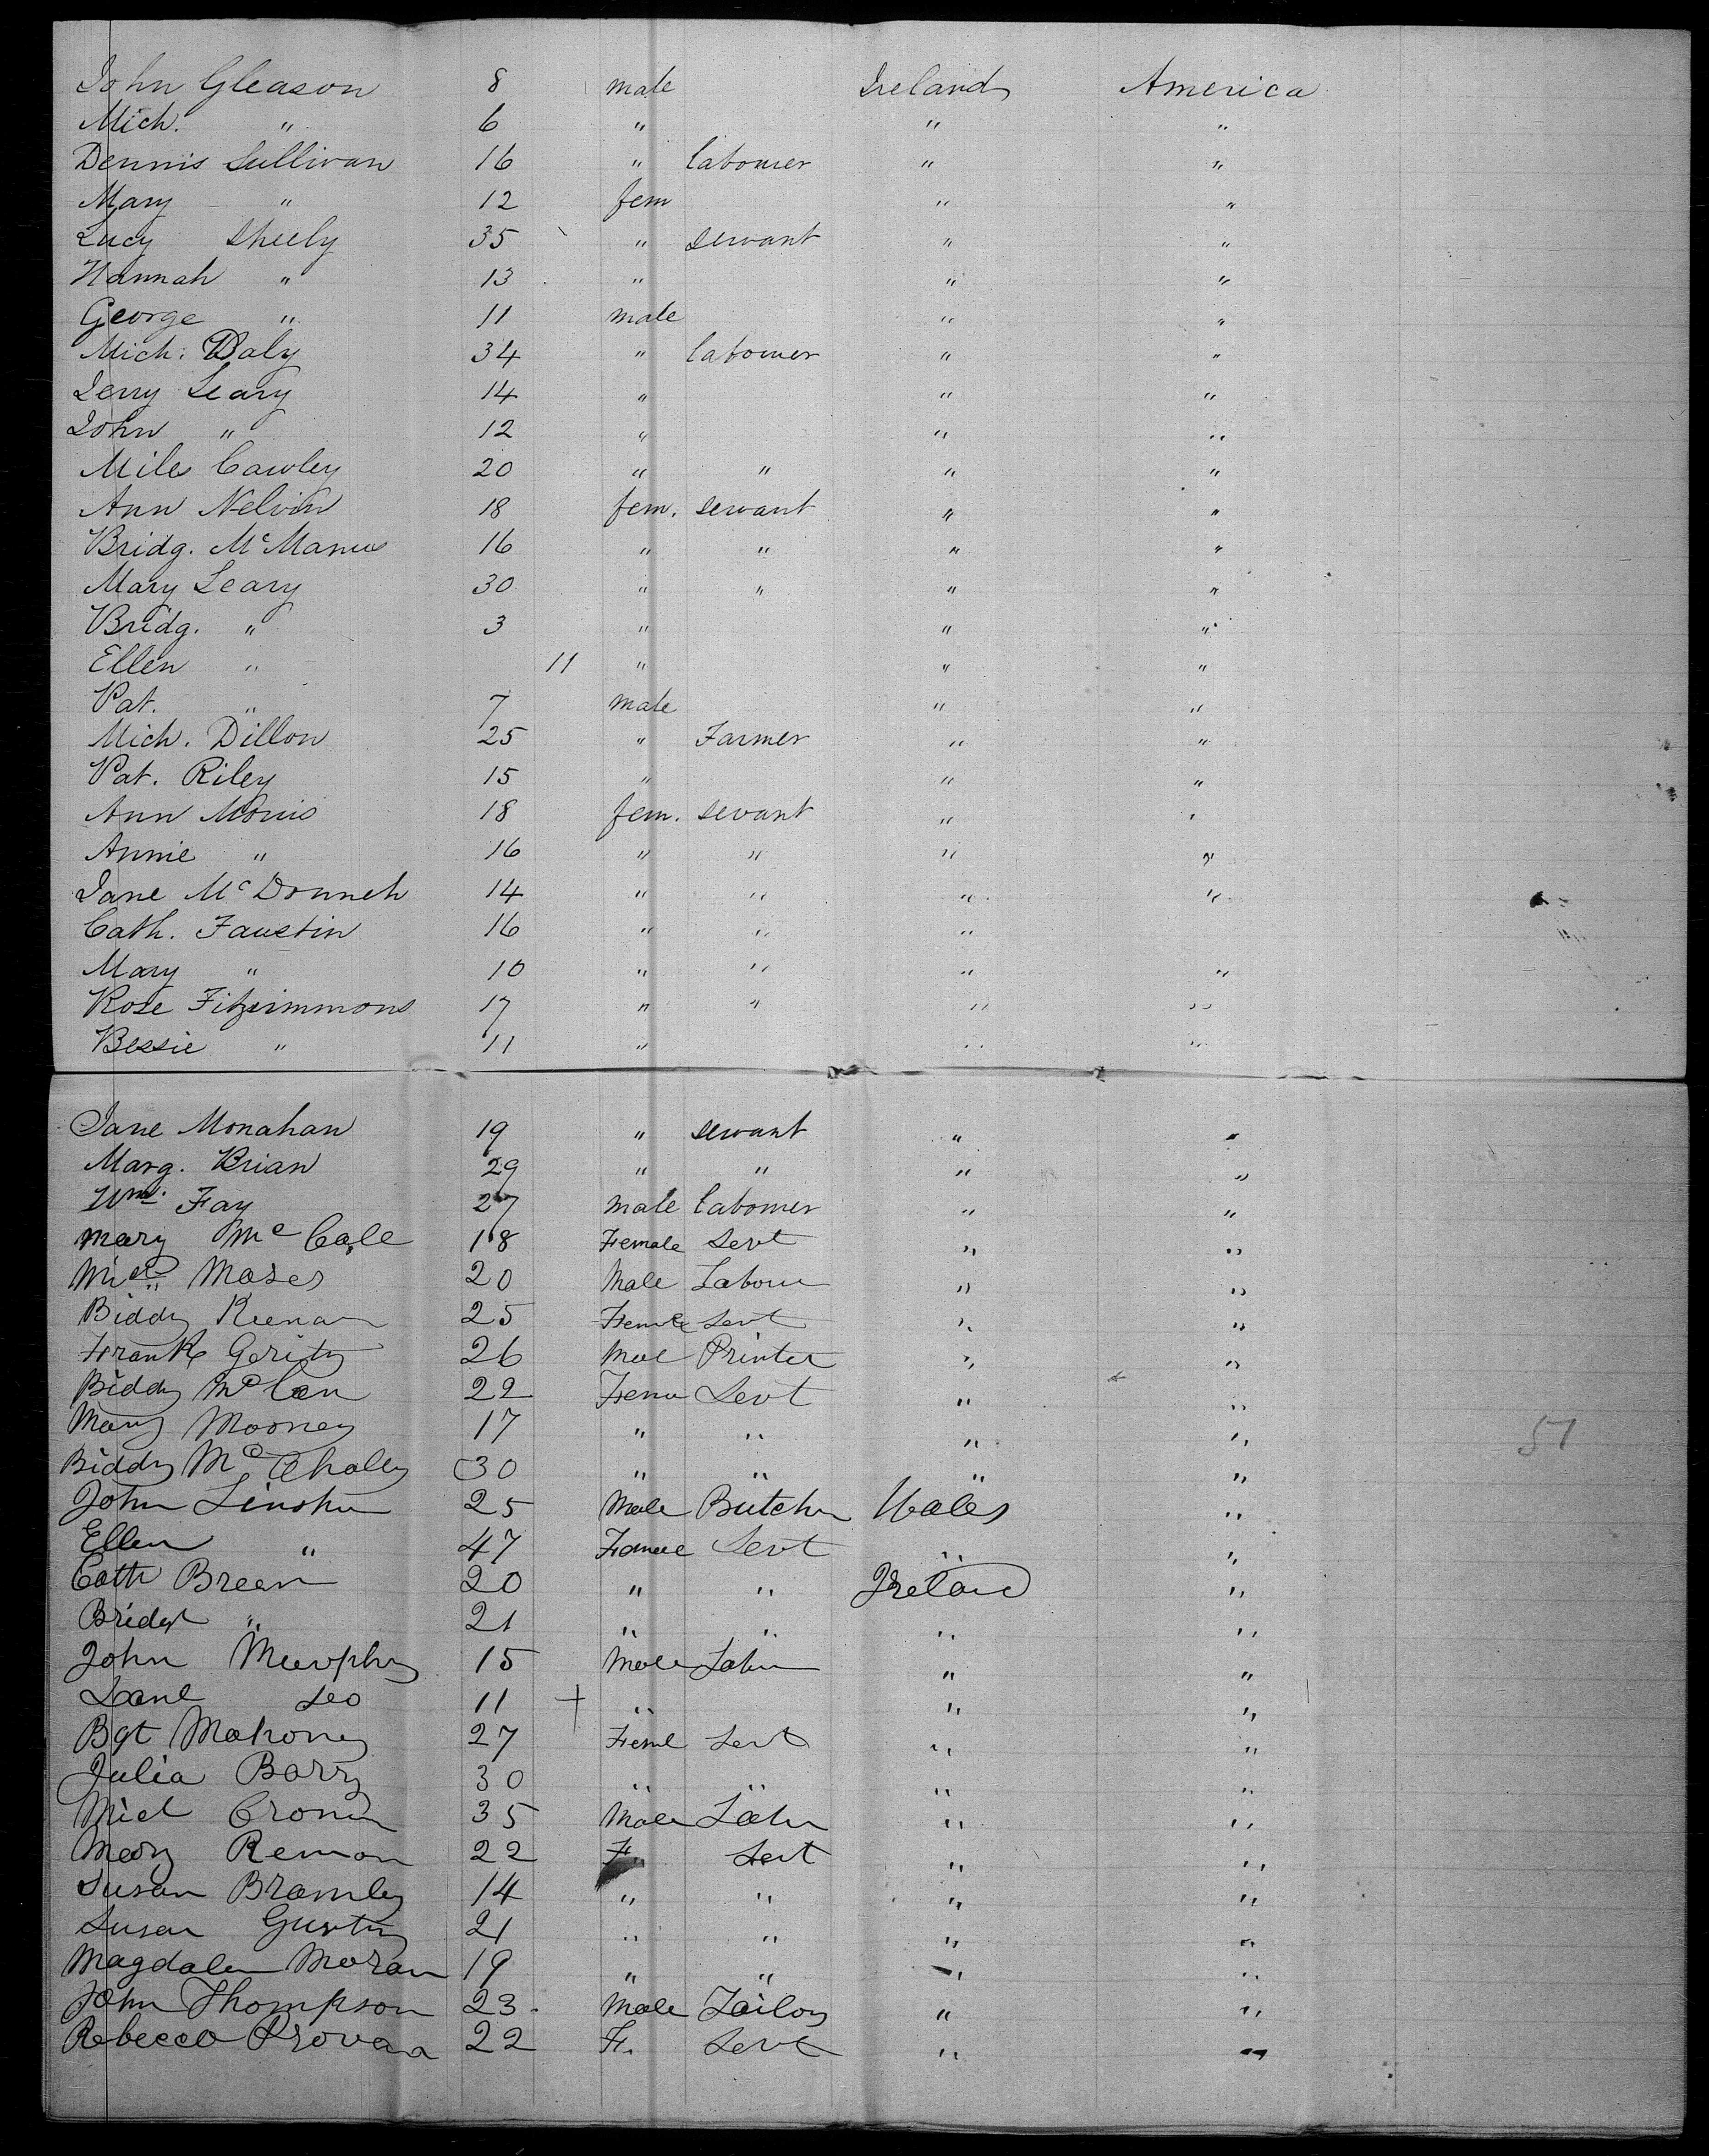 John Gleason 8 male Ireland America
Mich. " 6 " " "
Dennis Sullivan 16 " labourer " "
Mary " 12 fem " "
Lucy Sheely 35 " servant " "
Hannah " 13 " " "
George " 11 male " "
Mich. Daly 34 " labourer " "
Jerry Leary 14 " " "
John " 12 " " "
Miles Cawley 20 " " " "
Ann Nelvin 18 fem. servant " "
Bridg. McManus 16 " " " "
Mary Leary 30 " " " "
Bridg. " 3 " " "
Ellen " 11 " " "
Pat. " 7 male " "
Mich. Dillon 25 " Farmer " "
Pat. Riley 15 " " "
Ann Morris 18 fem. sevant " "
Annie " 16 " " " "
Jane McDonneh 14 " " " "
Cath. Faustin 16 " " "
Mary " 10 " " " "
Rose Fitzsimmons 17 " " " "
Bessie " 11 " " "
Jane Monahan 19 " servant " "
Marg. Brian 29 " " " "
Wm. Fay 27 male labourer " "
Mary Mc Cale 18 Female Sevt " "
Moses 20 Male Labour " "
Biddy Keenan 25 Female Sevt " "
Frank Gerity 26 Mal Printer " "
Biddy McCan 22 Fema Sevt " "
Mary Mooney 17 " " " "
Biddy Mc 30 " " " "
John 25 Male Butcher Wales "
Ellen " 47 Female Sevt " "
Cath Breen 20 " " Ireland "
Bridget " 21 " " " "
John Murphy 15 Male Labr " "
11 " " "
Bgt Mahoney 27 Feml Sevt " "
Julia Barry 30 " " " "
Mich Cronin 35 Male Labr " "
Mary 22 F. Sevt " "
Susan Bramley 14 " " " "
Susan 21 " " " "
Magdalen Moran 19 " " " "
John Thompson 23 Male Tailor " "
Rebecca 22 F. Sevt " "
51